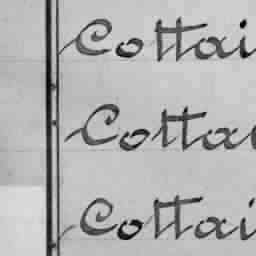 Cottai
Cottai
Cottai